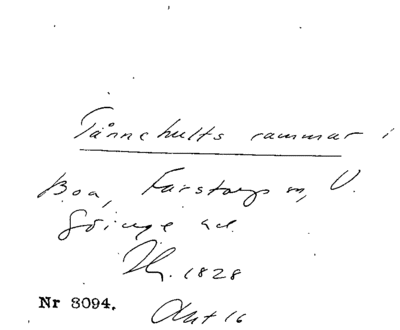 Tånnehults rammar i
Boa, Farstorps sn, V.
Göinge hd.
Hs. 1828
Nr 8094.
Akt 16